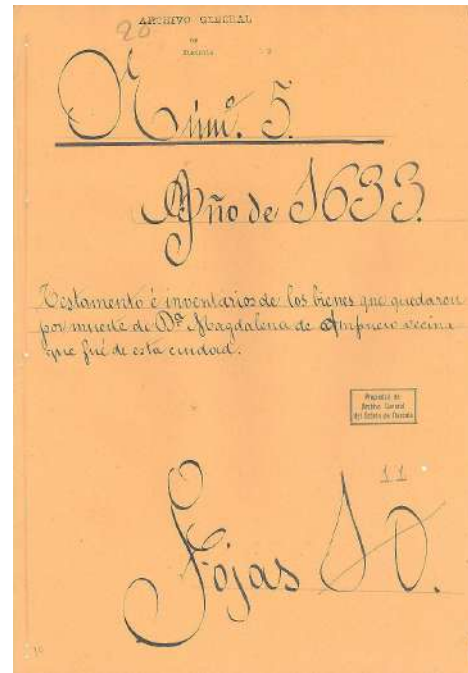 ARCHIVO GENERAL
20
DE
Núm.º 5.
Año de 1633.
Testamento é inventarios de los bienes que quedaron
por muerte de Dª Magdalena de Ampuero vecina
que fué de esta ciudad.
Propiedad del
Archivo General
del Estado de
11
Fojas 10.